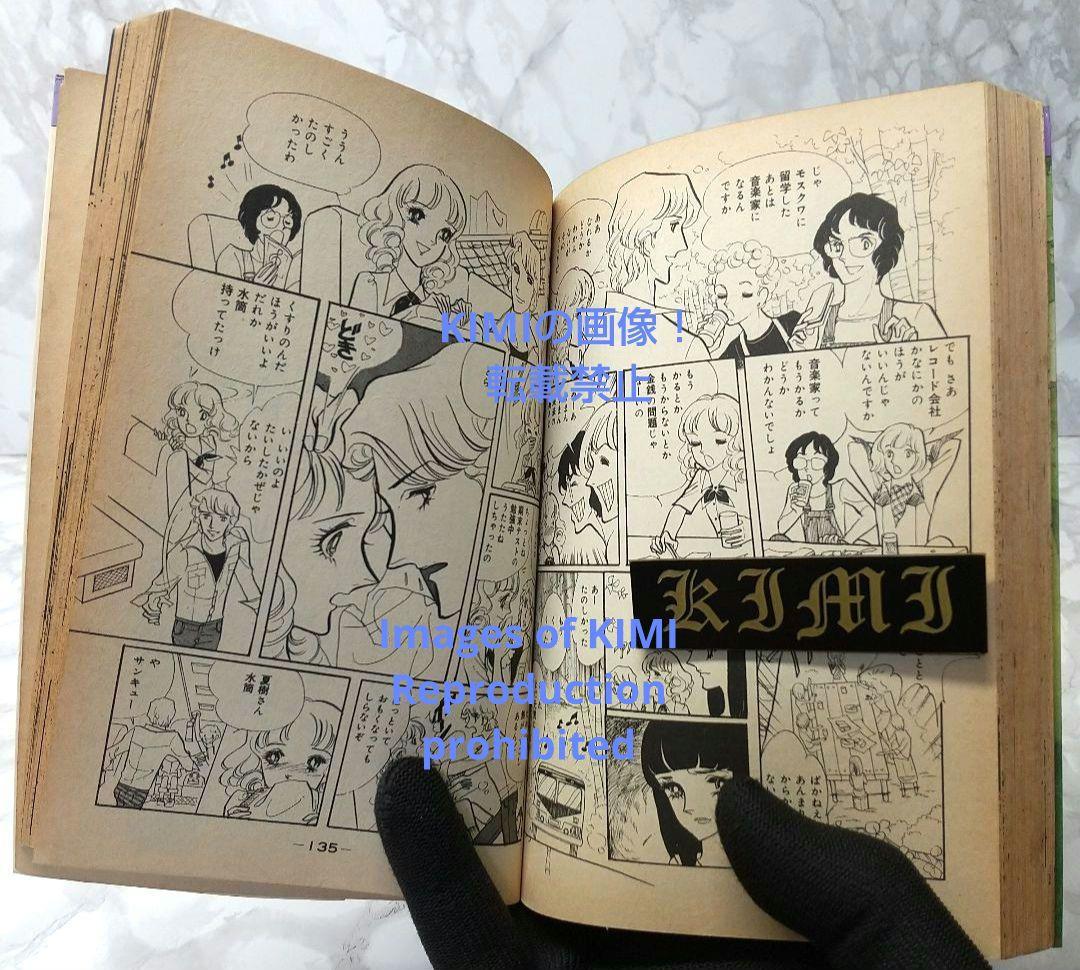 じゃ
モスクワに
留学した
あとは
音楽家に
なるん
ですか
でも さあ
レコード会社
かなにかの
ほうが
いいんじゃ
ないんですか
音楽家って
もうかるか
どうか
わかんないでしょ
もう
かるとか
もうからないとか
金銭
問題じゃ
あー
たのしかった
ばかねえ
ううん
すごく
たのし
かったわ
くすりのんだ
ほうがいいよ
だれか
水筒
持ってたっけ
いいのよ
たいしたかぜじゃ
ないから
どき
期末テストの
勉強中
うたたね
しちゃったの
っといて
おもくなっても
しらないぞ
夏樹さん
水筒
や
サンキュー
—135—
KIMIの画像！
転載禁止
Images of KIMI
Reproduction
prohibited
KIMI